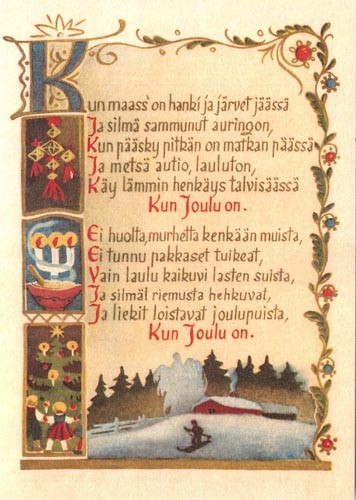 Kun maass' on hanki ja järvet jäässä
Ja silmä sammunut auringon,
Kun pääsky pitkän on matkan päässä
Ja metsä autio, lauluton,
Käy lämmin henkäys talvisäässä
Kun Joulu on.
Ei huolta, murhetta kenkään muista,
Ei tunnu pakkaset tuikeat,
Vain laulu kaikuvi lasten suista,
Ja silmät riemusta hehkuvat,
Ja liekit loistavat joulupuista,
Kun Joulu on.